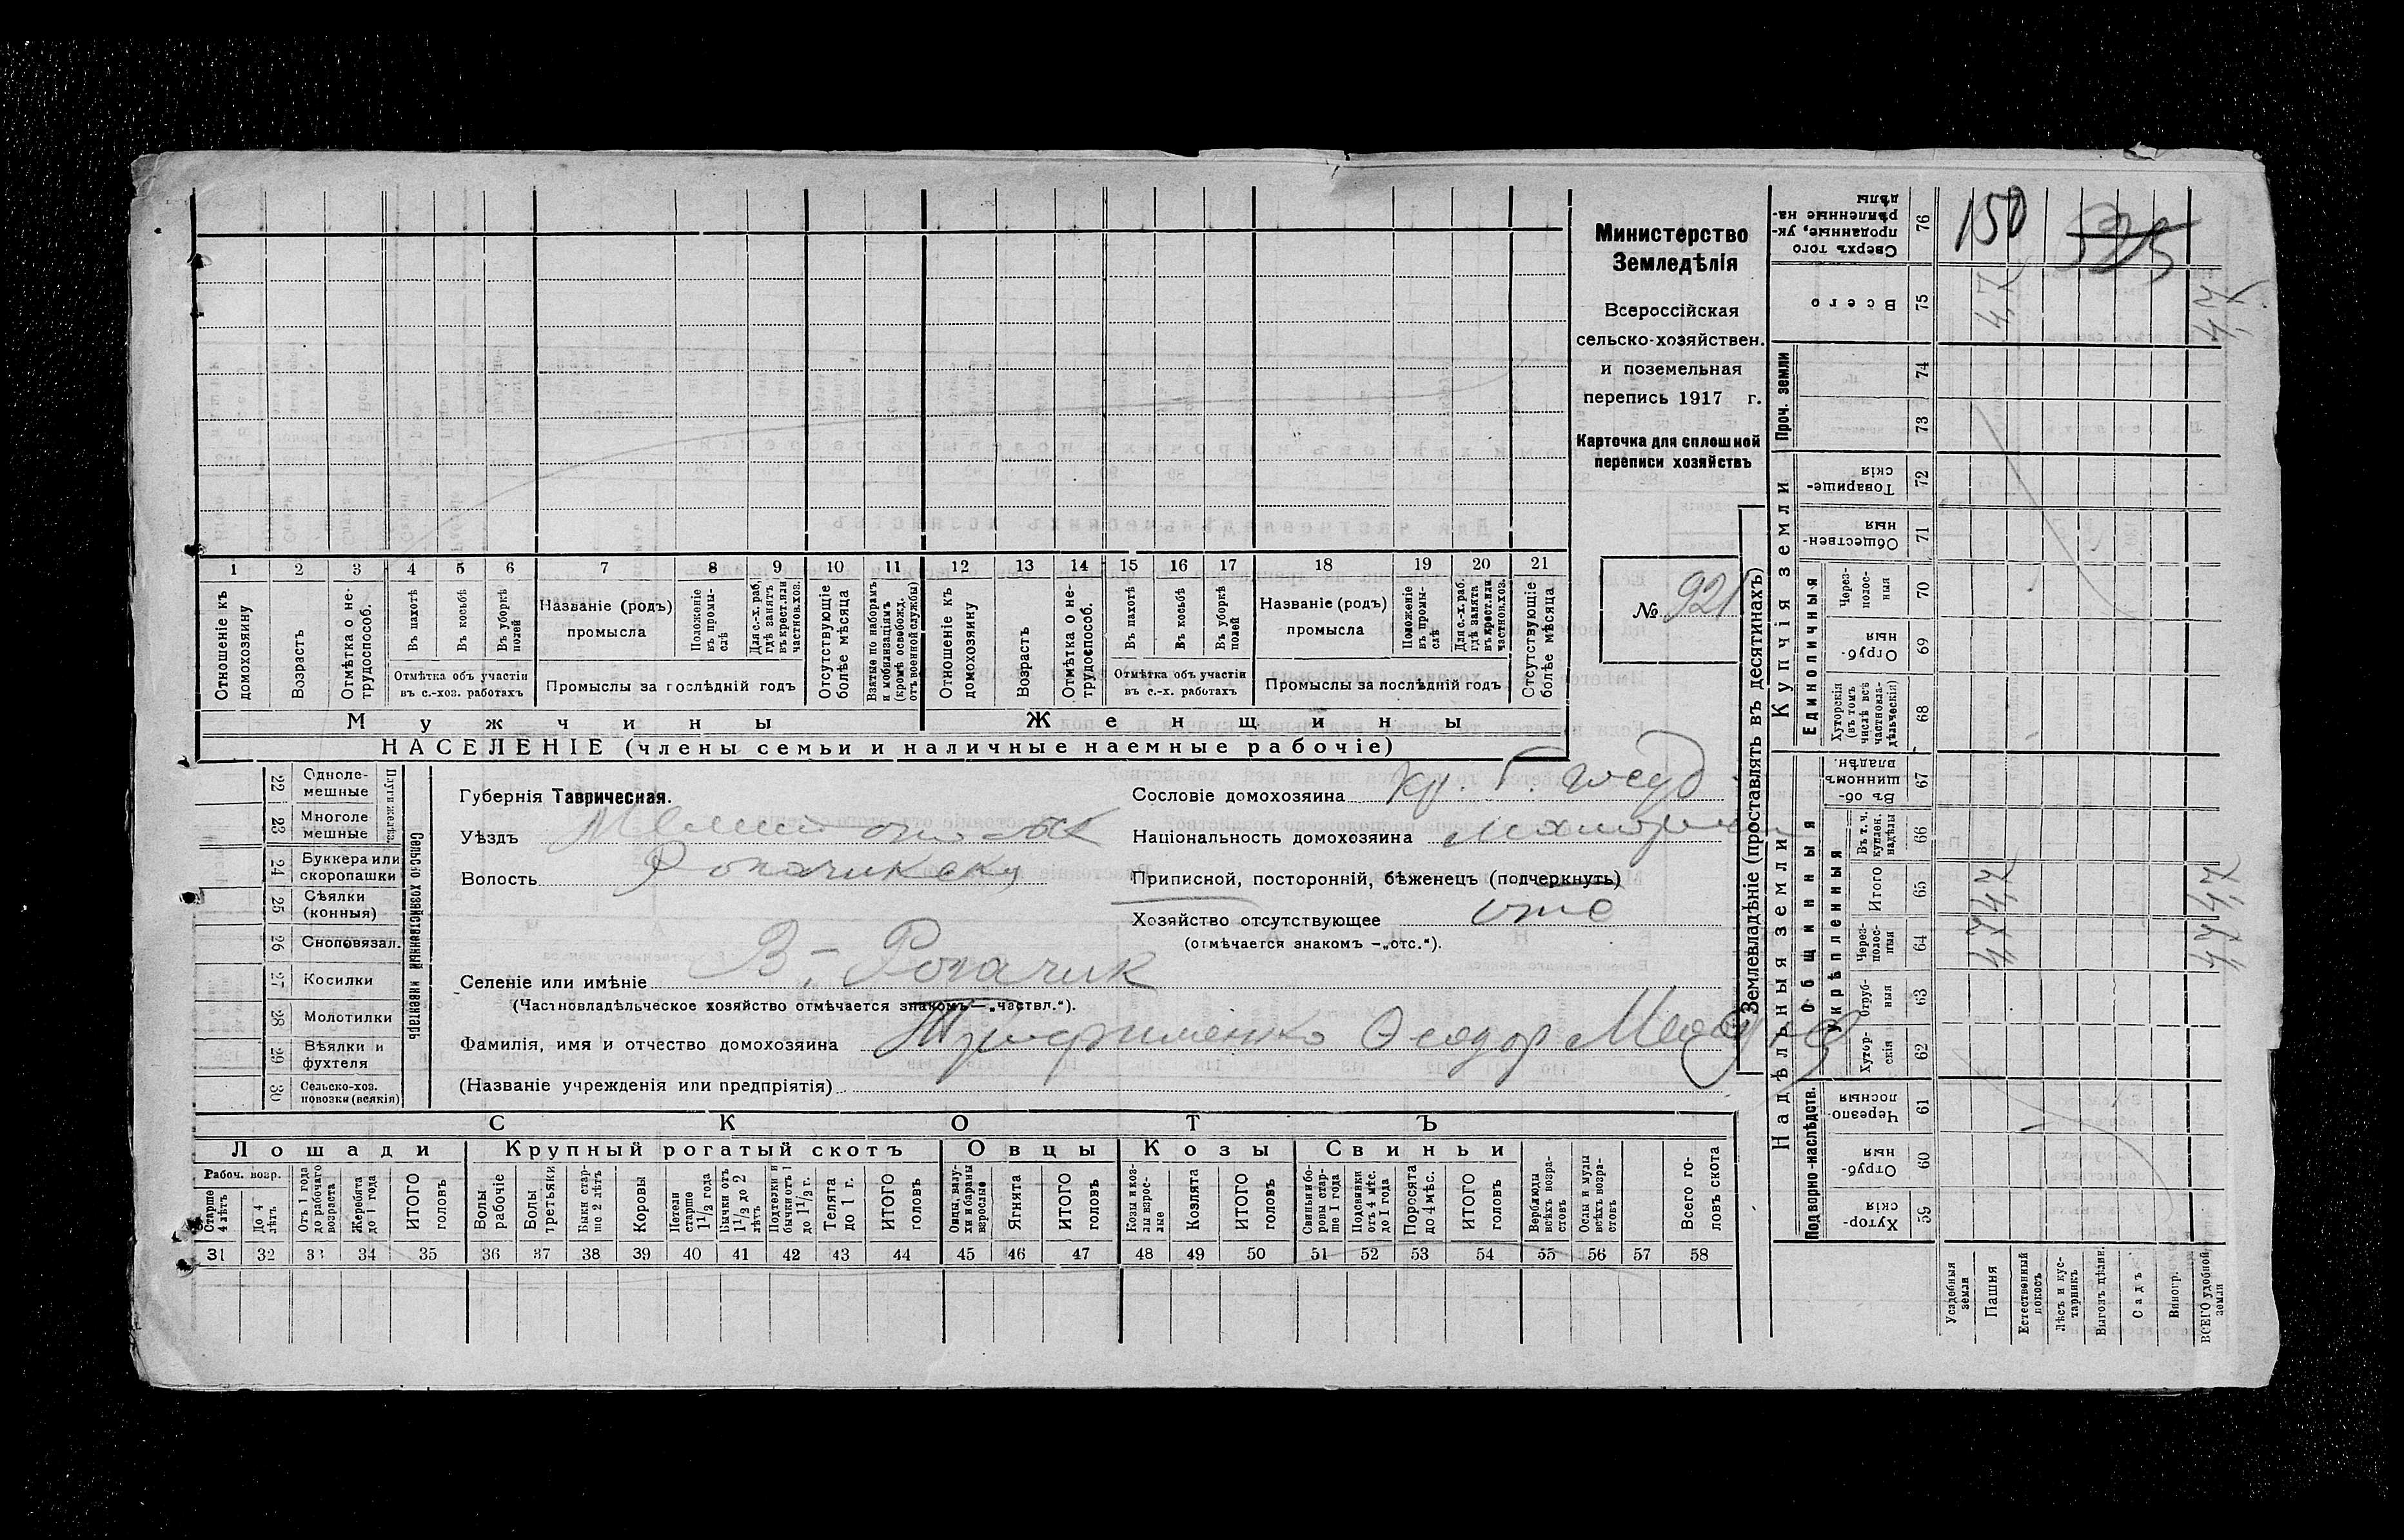 Министерство
Земледѣлія
Всероссійская
сельско-хозяйствен.
и поземельная
перепись 1917 г.
Карточка для сплошной
переписи хозяйствъ
№ 921
1 2 3 4 5 6 7 8 9 10 11 12 13 14 15 16 17 18 19 20 21
Отношеніе къ домохозяину
Возрастъ
Отмѣтка о не-трудоспособ.
Въ пахотѣ
Въ косьбѣ
Въ уборкѣ полей
Отмѣтка объ участіи
въ с.-хоз. работахъ
Названіе (родъ)
промысла
Положеніе въ промы-слѣ
Для с.-х. раб. гдѣ занятъ въ крест. или частнов. хоз.
Промыслы за послѣдній годъ
Отсутствующіе болѣе мѣсяца
Взятые по наборамъ и мобилизаціямъ (кромѣ освобожд. отъ военной службы)
Отношеніе къ домохозяину
Возрастъ
Отмѣтка о не-трудоспособ.
Въ пахотѣ
Въ косьбѣ
Въ уборкѣ полей
Отмѣтка объ участіи
въ с.-х. работахъ
Названіе (родъ)
промысла
Положеніе въ промы-слѣ
Для с.-х. раб. гдѣ занята въ крест. или частнов. хоз.
Промыслы за послѣдній годъ
Отсутствующіе болѣе мѣсяца
Мужчины
Женщины
НАСЕЛЕНІЕ (члены семьи и наличные наемные рабочіе)
22 Одноле-мешные
23 Многоле мешные
Плуги желѣз.
24 Буккера или скоропашки
25 Сѣялки (конныя)
26 Сноповязал.
27 Косилки
28 Молотилки
29 Вѣялки и фухтеля
30 Сельско-хоз. повозки (всякія)
Сельско хозяйственный инвентарь
Губернія Таврическая.
Уѣздъ
Волость
Селеніе или имѣніе В.-Рогачик
(Частновладѣльческое хозяйство отмѣчается знакомъ—„частвл.“).
Фамилія, имя и отчество домохозяина Трифименко Ѳеодор
(Названіе учрежденія или предпріятія)
Сословіе домохозяина кр.
Національность домохозяина
Приписной, посторонній, бѣженецъ (подчеркнуть)
Хозяйство отсутствующее отс
(отмѣчается знакомъ —„отс.“).
СКОТЪ
Лошади
Крупный рогатый скотъ
Овцы
Козы
Свиньи
Рабоч. возр.
Старше 4 лѣтъ
До 4 лѣтъ
Отъ 1 года до рабочаго возраста
Жеребята до 1 года
ИТОГО головъ
Волы рабочіе
Волы третьяки
Быки стар-ше 2 лѣтъ
Коровы
Нетели старше 1½ года
Бычки отъ 1½ до 2 лѣтъ
Подтелки и бычки отъ 1 до 1½ г.
Телята до 1 г.
ИТОГО головъ
Овцы, валу-хи и бараны взрослые
Ягнята
ИТОГО головъ
Козы и коз-лы взрос-лые
Козлята
ИТОГО головъ
Свиньи и бо-ровы стар-ше 1 года
Подсвинки отъ 4 мѣс. до 1 года
Поросята до 4 мѣс.
ИТОГО головъ
Верблюды всѣхъ возра-стовъ
Ослы и мулы всѣхъ возра-стовъ
Всего го-ловъ скота
31 32 33 34 35 36 37 38 39 40 41 42 43 44 45 46 47 48 49 50 51 52 53 54 55 56 57 58
Землевладѣніе (проставлять въ десятинахъ)
Надѣльныя земли
Купчія земли
Проч. земли
Подворно-наслѣдств.
Общинныя
укрѣпленныя
Единоличныя
Хутор-скія 59
Отруб-ныя 60
Черезпо-лосныя 61
Хутор-скія 62
Отруб-ныя 63
Через-полос-ныя 64
Итого 65
Въ т. ч. куплен. надѣлы 66
Въ об-щинномъ владѣн. 67
Хуторскія (въ томъ числѣ всѣ частновла-дѣльческія) 68
Отруб-ныя 69
Через-полос-ныя 70
Обществен-ныя 71
Товарище-скія 72
73
74
Всего 75
Сверхъ того проданные, ук-рѣпленные на-дѣлы 76
150
Усадебныя земли
Пашня
Естественный покосъ
Лѣсъ и кус-тарникъ
Выгонъ цѣлин.
Садъ
Виногр.
ВСЕГО удобной земли